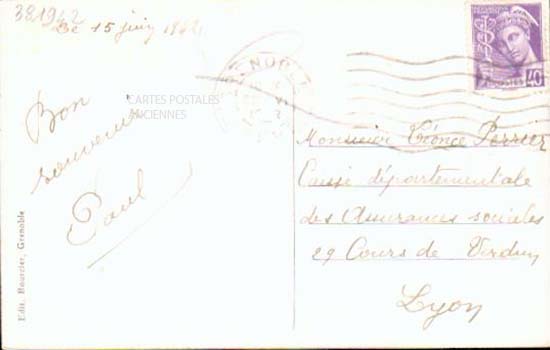 381942
15 juin 1942
Bon
souvenir
Paul
CARTES POSTALES
ANCIENNES
Edit. Hourcier, Grenoble
40
POSTES
Monsieur Léonce Perrier
Caisse départementale
des Assurances sociales
29 Cours de Verdun
Lyon